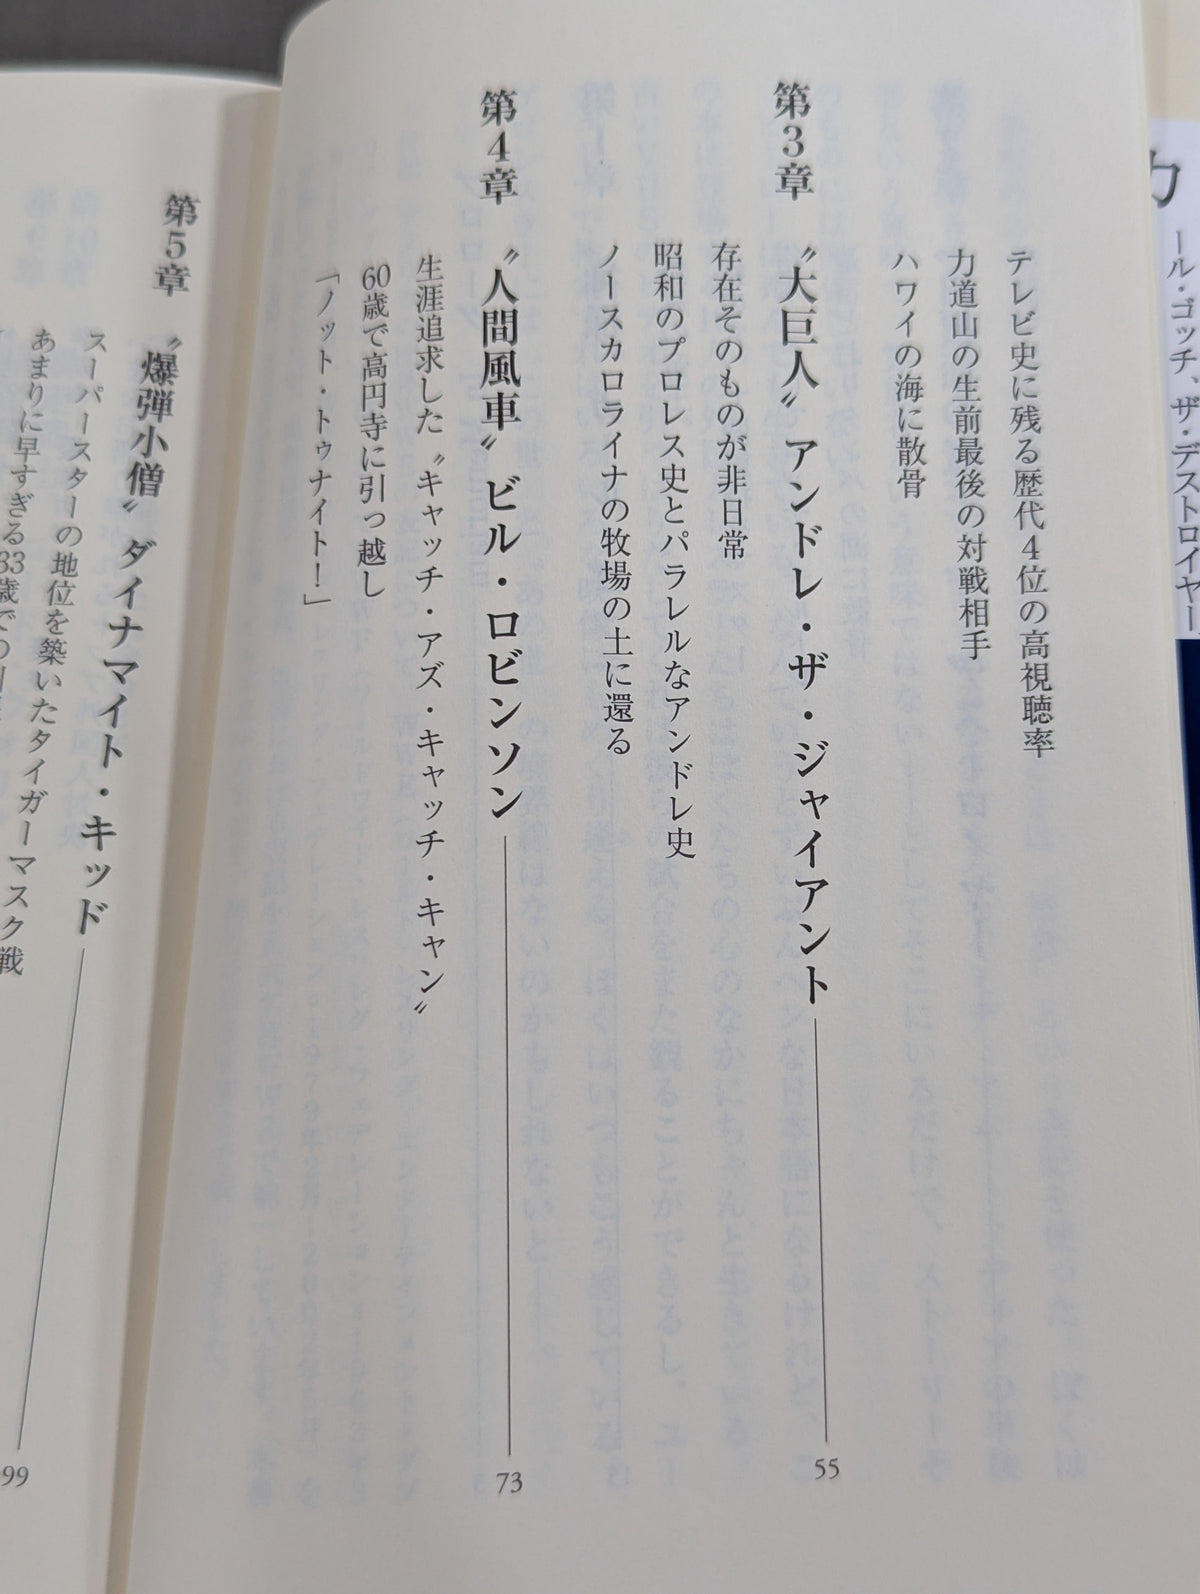 カ
ール・ゴッチ、ザ・デストロイヤー、
テレビ史に残る歴代4位の高視聴率
力道山の生前最後の対戦相手
ハワイの海に散骨
第3章 〝大巨人〟アンドレ・ザ・ジャイアント 55
存在そのものが非日常
昭和のプロレス史とパラレルなアンドレ史
ノースカロライナの牧場の土に還る
第4章 〝人間風車〟ビル・ロビンソン 73
生涯追求した〝キャッチ・アズ・キャッチ・キャン〟
60歳で高円寺に引っ越し
「ノット・トゥナイト！」
第5章 〝爆弾小僧〟ダイナマイト・キッド 99
スーパースターの地位を築いたタイガーマスク戦
あまりに早すぎる33歳での引